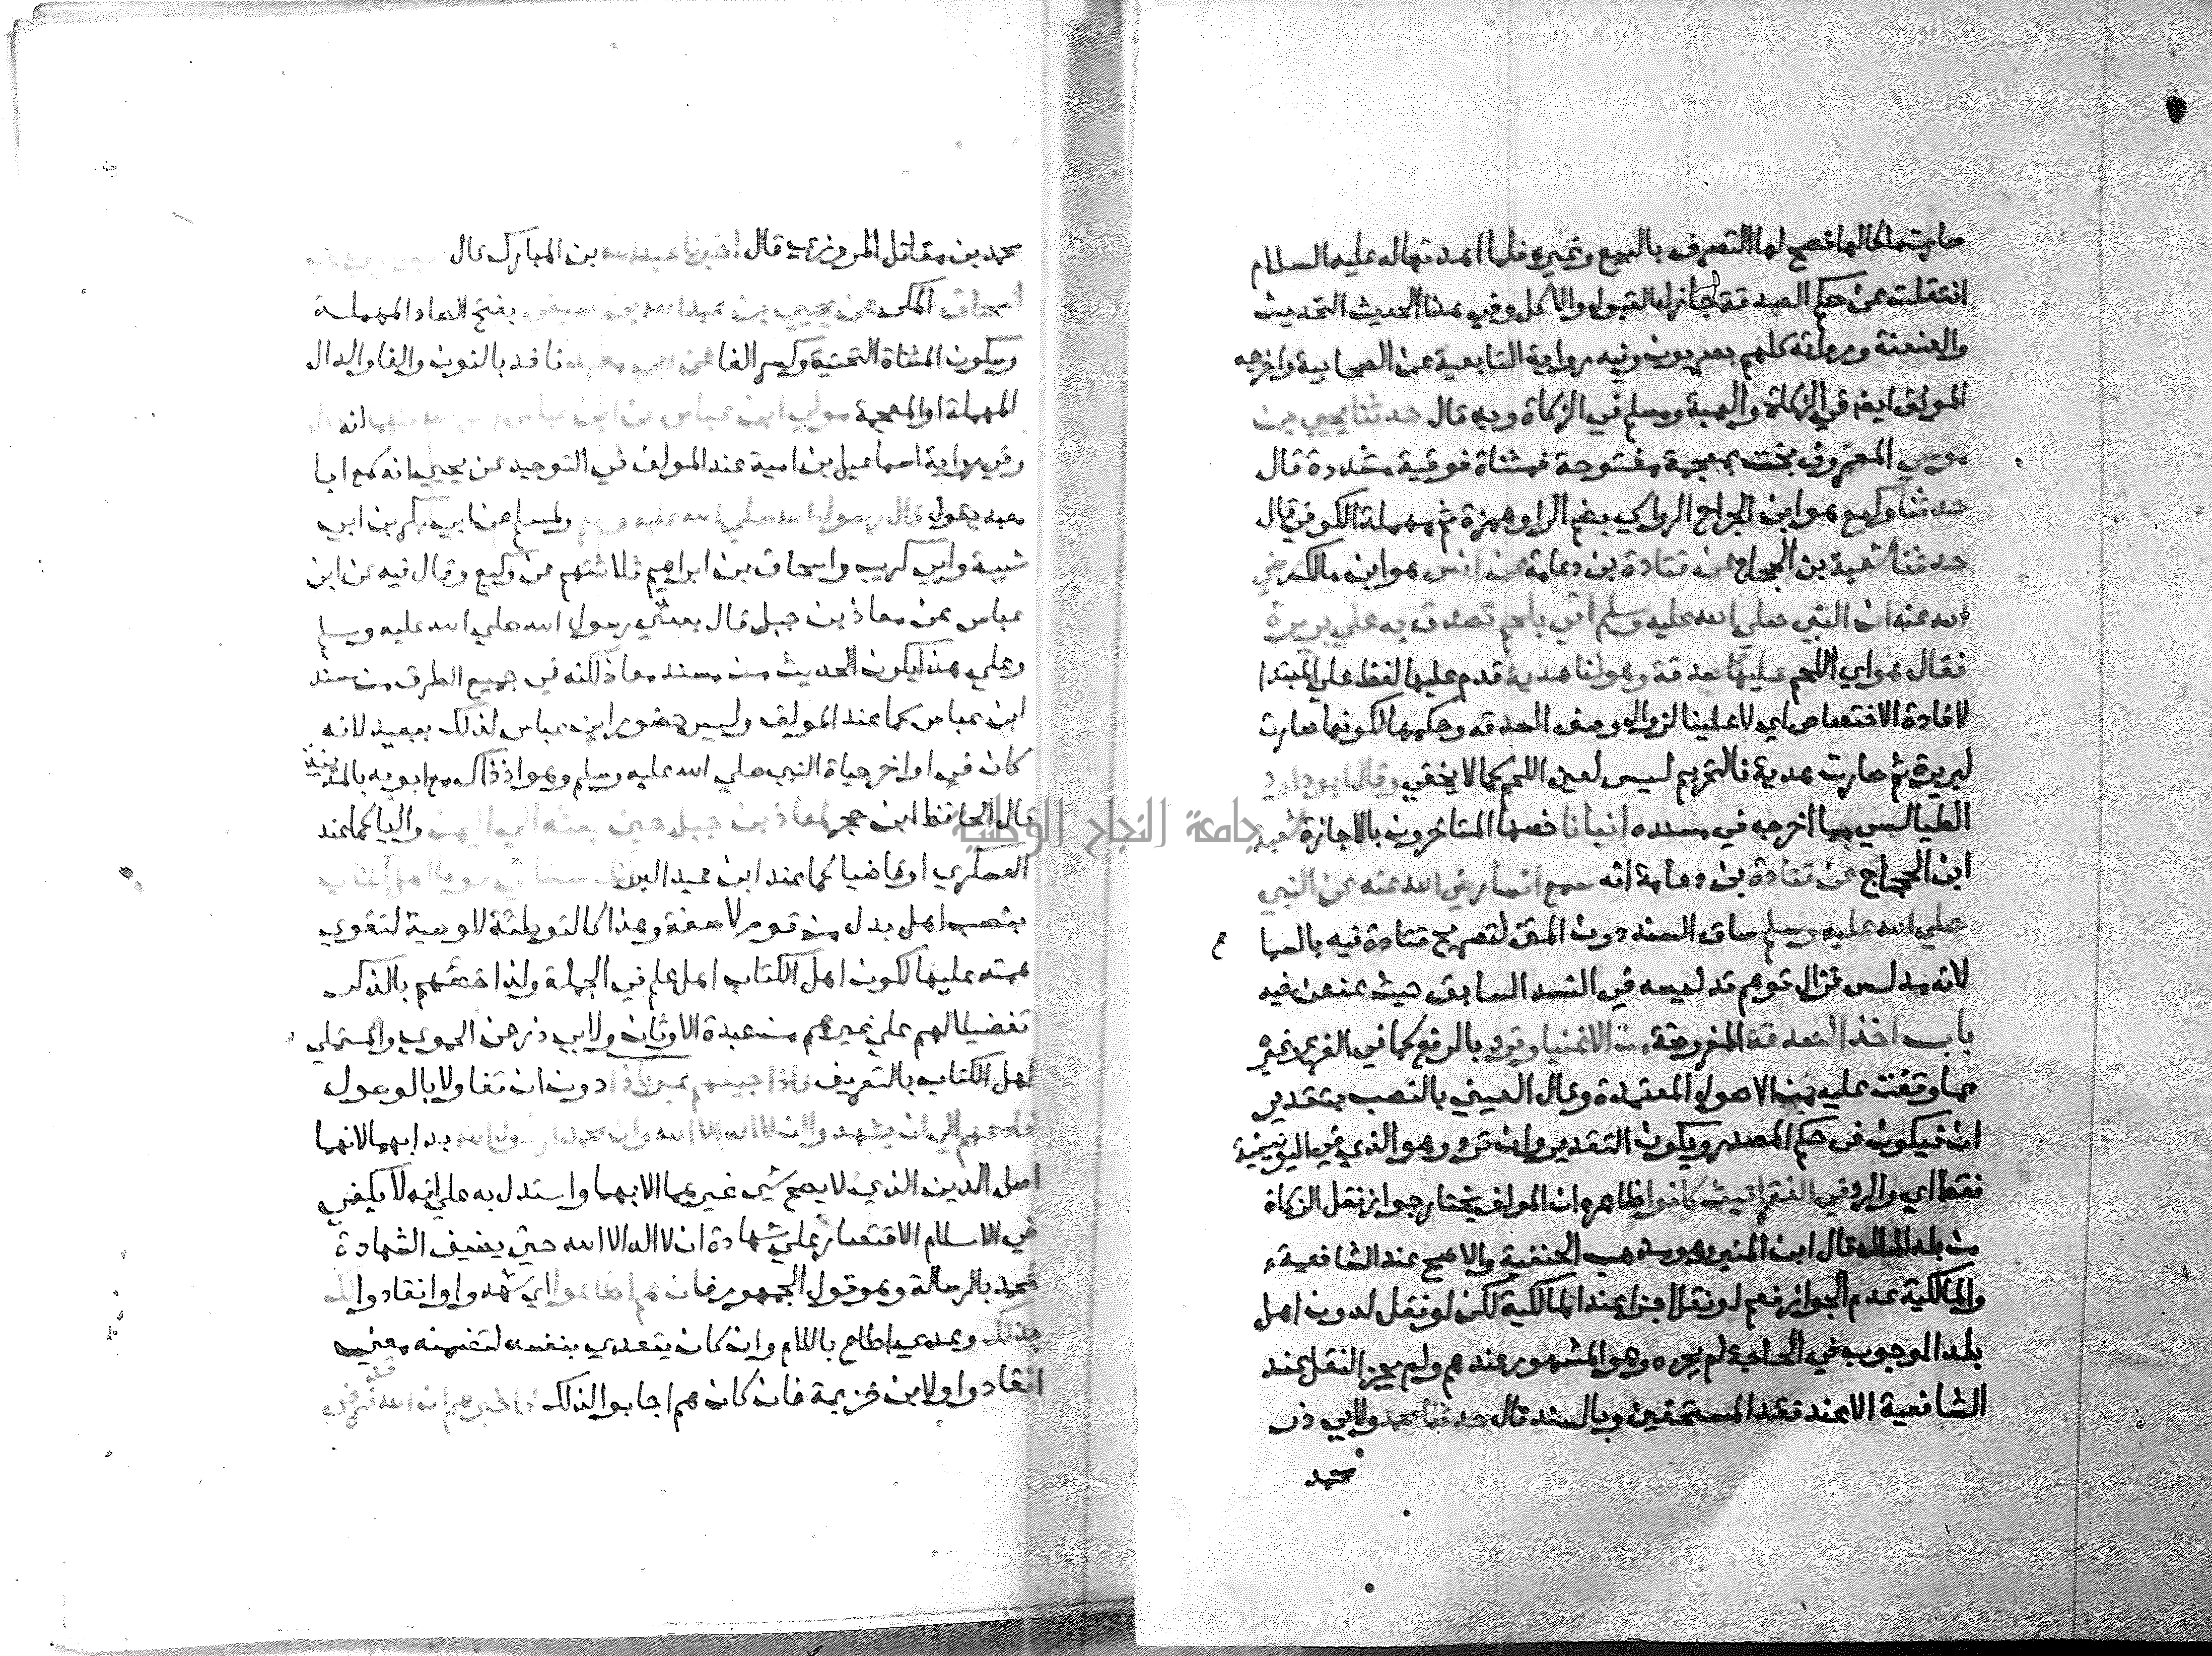 صارت ملكا لها فصح لها التصرف بالبيع وغيره فلما اهدتها له عليه السلام
انتقلت عن حكم الصدقة فجاز له القبول والاكل وفي هذا الحديث التحديث
والعنعنة ورواته كلهم بصريون وفيه رواية التابعية عن الصحابية واخرجه
المولف ايضا في الزكاة والهبة ومسلم في الزكاة وبه قال حدثنا يحيى بن
موسي المعروف بخت بمعجمة مفتوحة فمثناة فوقية مشددة قال
حدثنا وكيع هو ابن الجراح الرواسي بضم الرا وهمزة ثم مهملة الكوفي قال
حدثنا شعبة بن الحجاج عن قتادة بن دعامة عن انس هو ابن مالك رضي
الله عنه ان النبي صلي الله عليه وسلم اتي بلحم تصدق به علي بريرة
فقال هو اي اللحم عليها صدقة وهو لنا هدية قدم عليها لفظ علي المبتدا
لافادة الاختصاص اي لا علينا لزوال وصف الصدقه وحكمها لكونها صارت
لبريرة ثم صارت هدية فالتحريم ليس لعين اللحم كما لا يخفي وقال ابو داود
الطيالسي مما اخرجه في مسنده انبانا خصها المتاخرون بالاجازة شعبة
ابن الحجاج عن قتادة بن دعامة انه سمع انسا رضي الله عنه عن النبي
صلي الله عليه وسلم ساق السند دون المتن لتصريح قتادة فيه بالسما
ع
لانه مدلس فزال توهم تدليسه في السند السابق حيث عنعن فيه
باب اخذ الصدقة المفروضة من الاغنيا وترد بالرفع كما في الفرع وغيره
مما وقفت عليه من الاصول المعتمدة وقال العيني بالنصب بتقدير
ان فيكون في حكم المصدر ويكون التقدير وان ترد وهو الذي في اليونينية
فقط اي والرد في الفقرا حيث كانوا ظاهره ان المولف يختار جواز نقل الزكاة
من بلد المال قال ابن المنير وهو مذهب الحنفية والاصح عند الشافعية
والمالكية عدم الجواز نعم لو نقل اجزا عند المالكية لكن لو نقل لدون اهل
بلد الوجوب في الحاجة لم يجزه وهو المشهور عندهم ولم يجز النقل عند
الشافعية الا عند فقد المستحقين وبالسند قال حدثنا محمد ولابي ذر
محمد
محمد بن مقاتل المروزي قال اخبرنا عبد الله بن المبارك قال
اسحاق المكي عن يحيي بن عبد الله بن صيفي بفتح الصاد المهملة
وسكون المثناة التحتية وكسر الفا عن ابي معبد نافد بالنون والفا والدال
المهملة او المعجمة مولي ابن عباس عن ابن عباس رضي الله عنهما انه
وفي رواية اسماعيل بن امية عند المولف في التوحيد عن يحيي انه سمع ابا
معبد يقول قال رسول الله صلي الله عليه وسلم ولمسلم عن ابي بكر بن ابي
شيبة وابي كريب واسحاق بن ابراهيم ثلاثتهم عن وكيع وقال فيه عن ابن
عباس عن معاذ بن جبل قال بعثني رسول الله صلي الله عليه وسلم
وعلي هذا يكون الحديث من مسند معاذ لكنه في جميع الطرق من مسند
ابن عباس كما عند المولف وليس حضور ابن عباس لذلك ببعيد لانه
كان في اواخر حياة النبي صلي الله عليه وسلم وهو اذ ذاك مع ابويه بالمدينة
قال الحافظ ابن حجر لمعاذ بن جبل حين بعثه الي اليمن واليا كما عند
العسكري او قاضيا كما عند ابن عبد البر
بنصب اهل بدل من قوم لا صفة وهذا كالتوطئة للوصية لتقوي
همته عليها لكون اهل الكتاب اهل علم في الجملة ولذا خصهم بالذكر
تفضيلا لهم علي غيرهم من عبدة الاوثان ولابي ذر عن الحموي والمستملي
اهل الكتاب بالتعريف فاذا جيتهم عبر باذا دون ان تفاولا بالوصول
فادعهم الي ان يشهدوا ان لا اله الا الله وان محمدا رسول الله بدا بهما لانهما
اصل الدين الذي لا يصح شي غيرهما الا بهما واستدل به علي انه لا يكفي
في الاسلام الاقتصار علي شهادة ان لا اله الا الله حتي يضيف الشهادة
لمحمد بالرسالة وهو قول الجمهور فان هم اطاعوا اي شهدوا وانقادوا لك
بذلك وعدي اطاع باللام وان كان يتعدي بنفسه لتضمنه معني
انقادوا ولابن خزيمة فان كان هم اجابوا لذلك فاخبرهم ان الله قد فرض
جامعة النجاح الوطنية